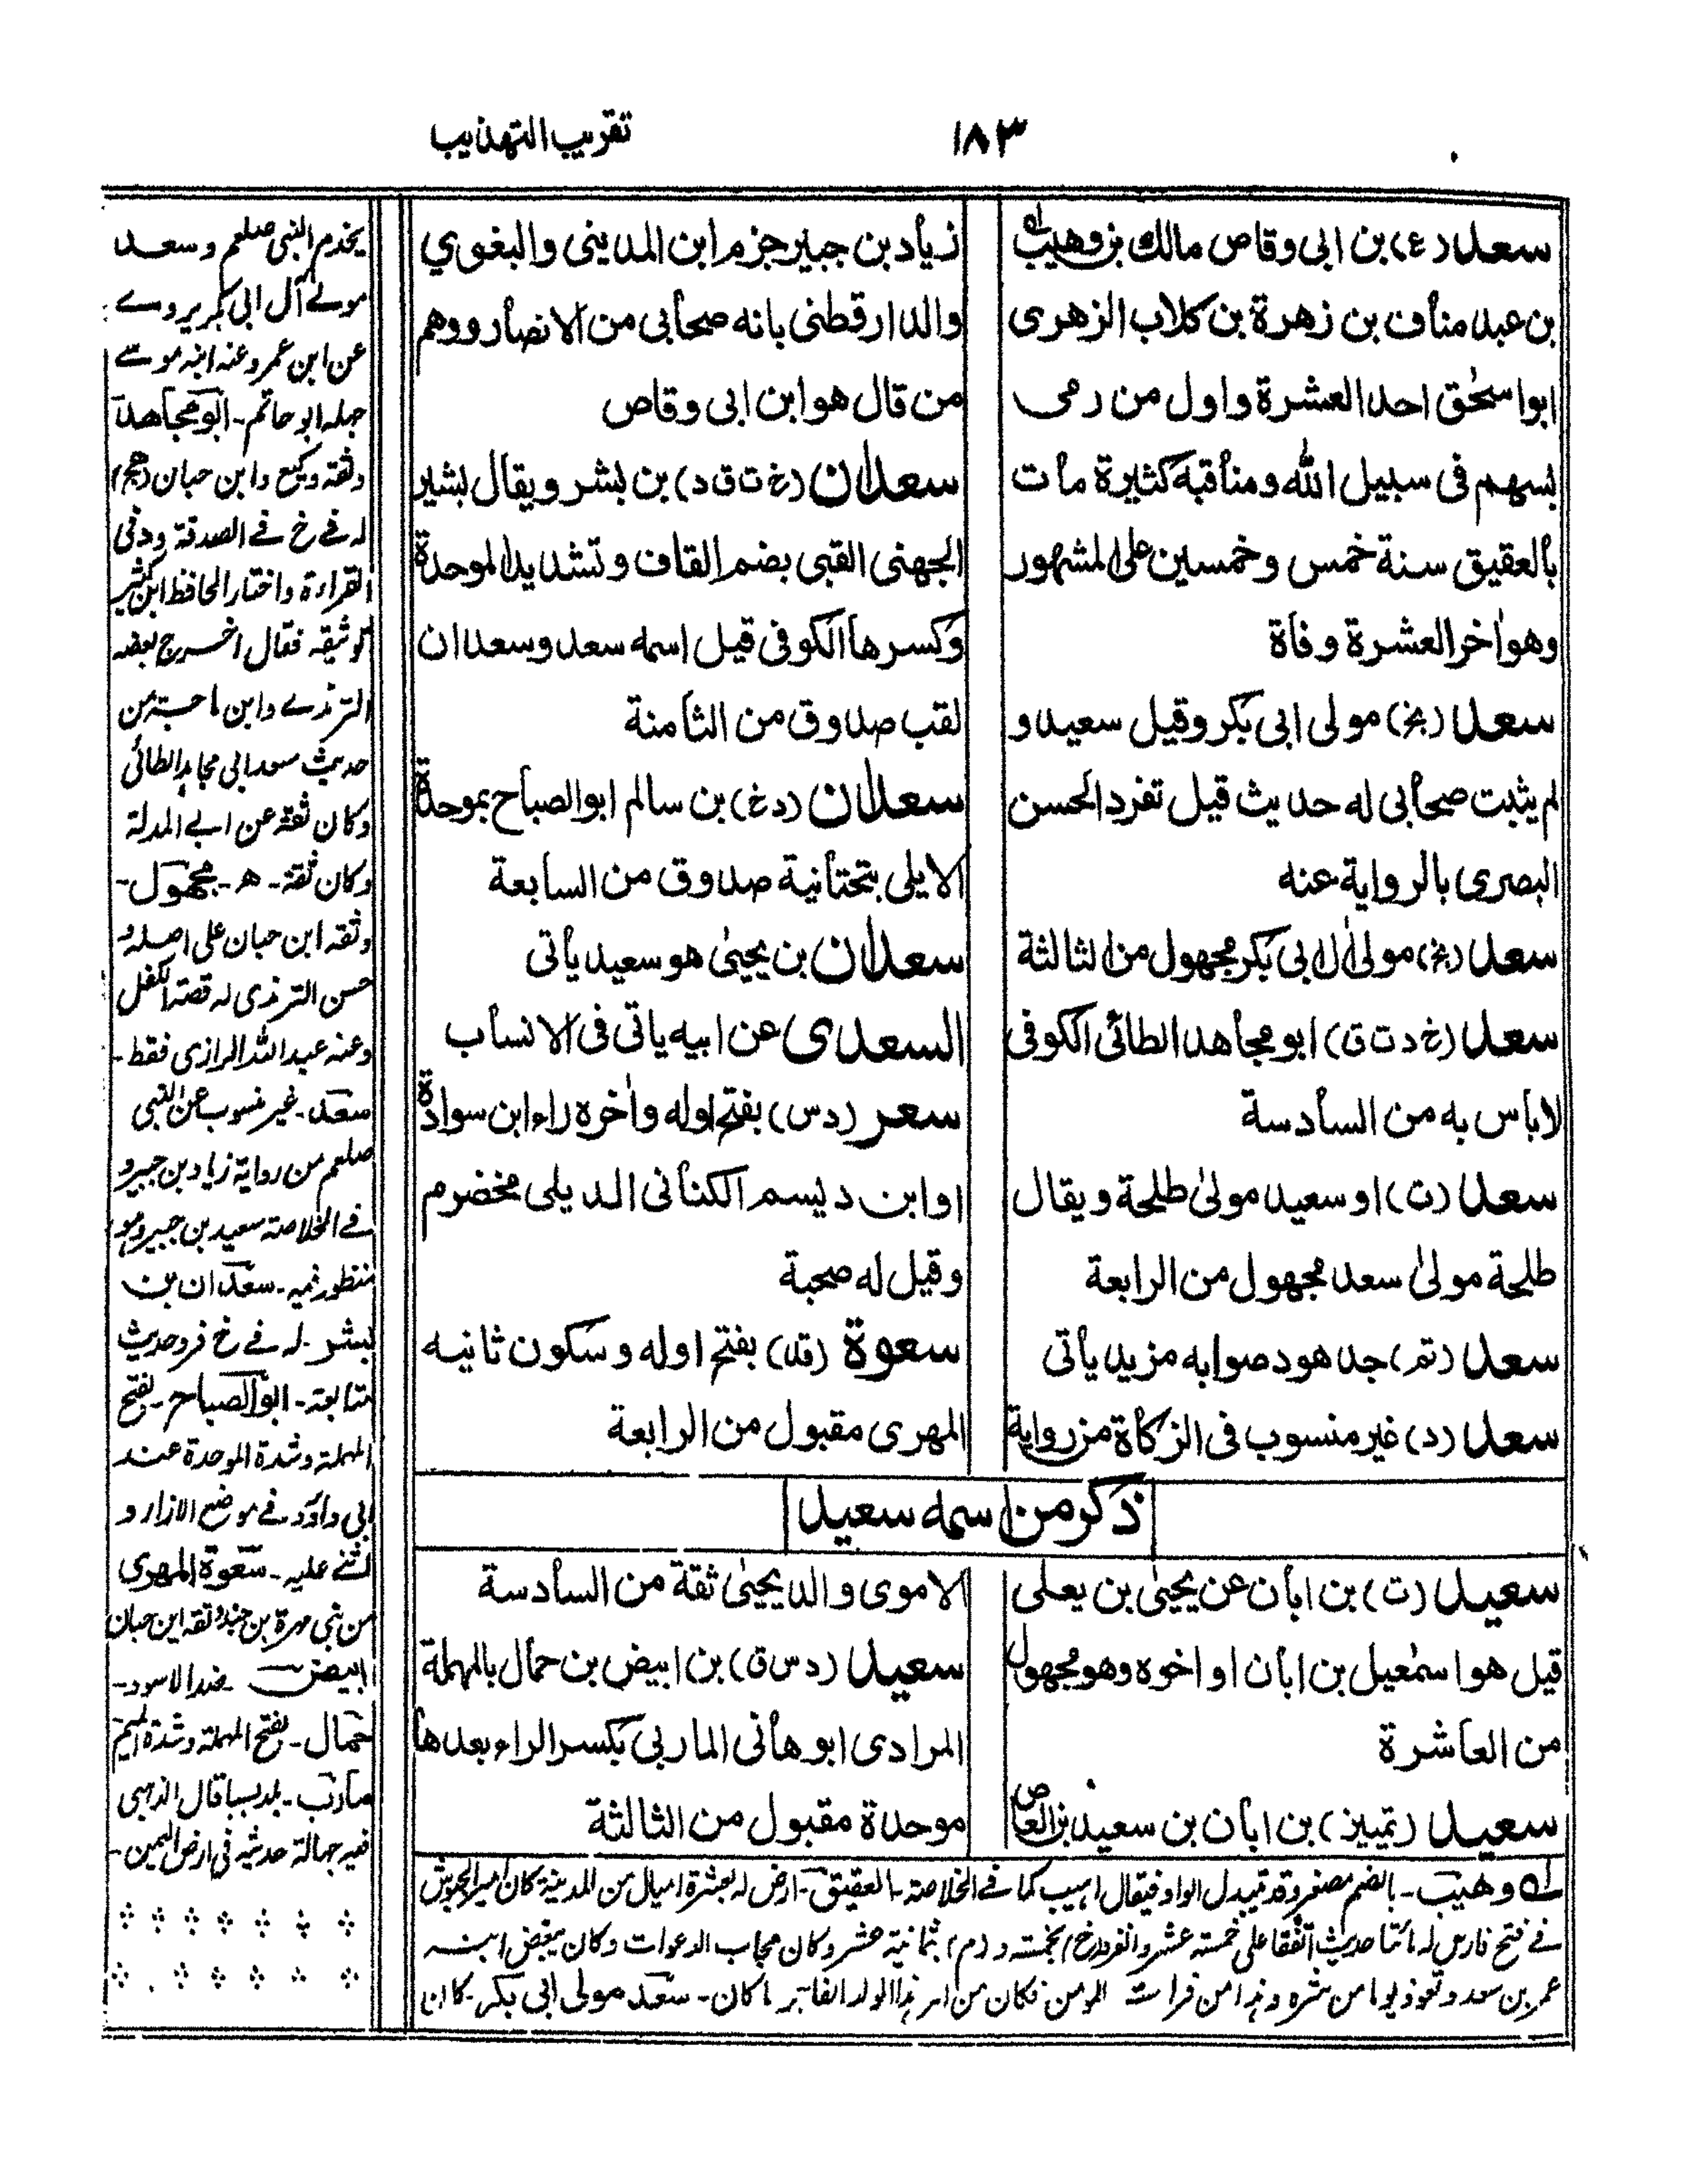 ١٨٣
تقريب التهذيب
سعد (ع) بن ابى وقاص مالك بن وهيب
بن عبد مناف بن زهرة بن كلاب الزهرى
ابو اسحٰق احد العشرة واول من رمى
بسهم فى سبيل الله ومناقبه كثيرة مات
بالعقيق سنة خمس وخمسين على المشهور
وهو اٰخر العشرة وفاة
سعد (بخ) مولى ابى بكر وقيل سعيد و
لم يثبت صحابى له حديث قيل تفرد الحسن
البصرى بالرواية عنه
سعد (بخ) مولىٰ اٰل ابى بكر مجهول من الثالثة
سعد (خ د ت ق) ابو مجاهد الطائى الكوفى
لاباس به من السادسة
سعد (ت) او سعيد مولىٰ طلحة ويقال
طلحة مولىٰ سعد مجهول من الرابعة
سعد (تم) جد هود صوابه مزيد يأتى
سعد (د) غير منسوب فى الزكاة من رواية
زياد بن جبير جزم ابن المدينى والبغوي
والدارقطنى بانه صحابى من الانصار ووهم
من قال هو ابن ابى وقاص
سعدان (خ ت ق د) بن بشر ويقال بشير
الجهنى القبى بضم القاف وتشديد الموحدة
وكسرها الكوفى قيل اسمه سعد وسعدان
لقب صدوق من الثامنة
سعدان (د غ) بن سالم ابو الصباح بموحدة
الايلى بتحتانية صدوق من السابعة
سعدان بن يحيىٰ هو سعيد يأتى
السعدى عن ابيه ياتى فى الانساب
سعر (د س) بفتح اوله واٰخره راء ابن سوادة
او ابن ديسم الكنانى الديلى مخضرم
وقيل له صحبة
سعوة (قد) بفتح اوله وسكون ثانيه
المهرى مقبول من الرابعة
ذكر من اسمه سعيد
سعيد (ت) بن ابان عن يحيىٰ بن يعلى
قيل هو اسمٰعيل بن ابان او اخوه وهو مجهول
من العاشرة
سعيد (تمييز) بن ابان بن سعيد بن العاص
الاموى والد يحيىٰ ثقة من السادسة
سعيد (د س ق) بن ابيض بن حمال بالمهملة
المرادى ابو هانى الماربى بكسر الراء بعدها
موحدة مقبول من الثالثة
وهيب - بالضم مصغر وقد تبدل الواو فيقال اهيب كما فے الخلاصة - العقيق - ارض له بعشرة اميال من المدينة كان امير الجيوش
فے فتح فارس له مائتا حديث اتفقا على خمسة عشر وانفرد (خ) بخمسة و (م) ثمانية عشر وكان مجاب الدعوات وكان يبغض ابنه
عمر بن سعد وتعوذ يوما من شره وهذا من فراسة المومن فكان من امر هذا الولد الفاجر ما كان - سعد مولى ابى بكر - كان
يخدم النبى صلعم وسعد
مولے آل ابى بكر يروے
عن ابن عمر وعنه ابنه موسے
جهله ابو حاتم - ابو مجاهد
وثقه وكيع وابن حبان
له فے خ فے الصدقة و
القراءة واختار الحافظ ابن كثير
توثيقه فقال اخرج بعضه
الترمذے وابن ماجة من
حديث سعد ابى مجاهد الطائى
وكان ثقة عن ابے المدلة
وكان ثقة - ه - مجهول -
وثقه ابن حبان على اصله و
حسن الترمذى له قصة الكفل
وعنه عبد الله الرازى فقط -
سعد - غير منسوب عن النبى
صلعم من رواية زياد بن جبير و
فے الخلاصة سعيد بن جبير وهو
منظور فيه - سعدان بن
بشر - له فے خ فرد حديث
متابعة - ابو الصباح - بفتح
المهملة وشدة الموحدة عند
ابى داؤد فے موضع الازار و
اثنے عليه - سعوة المهرى
من بنى مهرة بن حيد وثقه ابن حبان
ابيض - ضد الاسود -
حمال - بفتح المهملة وشدة الميم
مارب - بلد سبا قال الذهبى
فيه جهالة حديثه فى ارض اليمن -